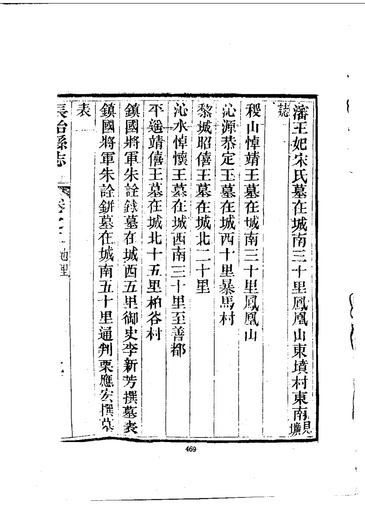 瀋王妃宋氏墓在城南三十里鳳凰山東墳村東南見壙
誌
稷山悼靖王墓在城南三十里鳳凰山
沁源恭定王墓在城西十里暴馬村
黎城昭僖王墓在城北二十里
沁水悼懷王墓在城西南三十里至善都
平遙靖僖王墓在城北十五里柏谷村
鎮國將軍朱詮鉢墓在城西五里御史李新芳撰墓表
鎮國將軍朱詮鉼墓在城南五十里通判栗應宏撰墓
表
長治縣志
卷之 地理
469